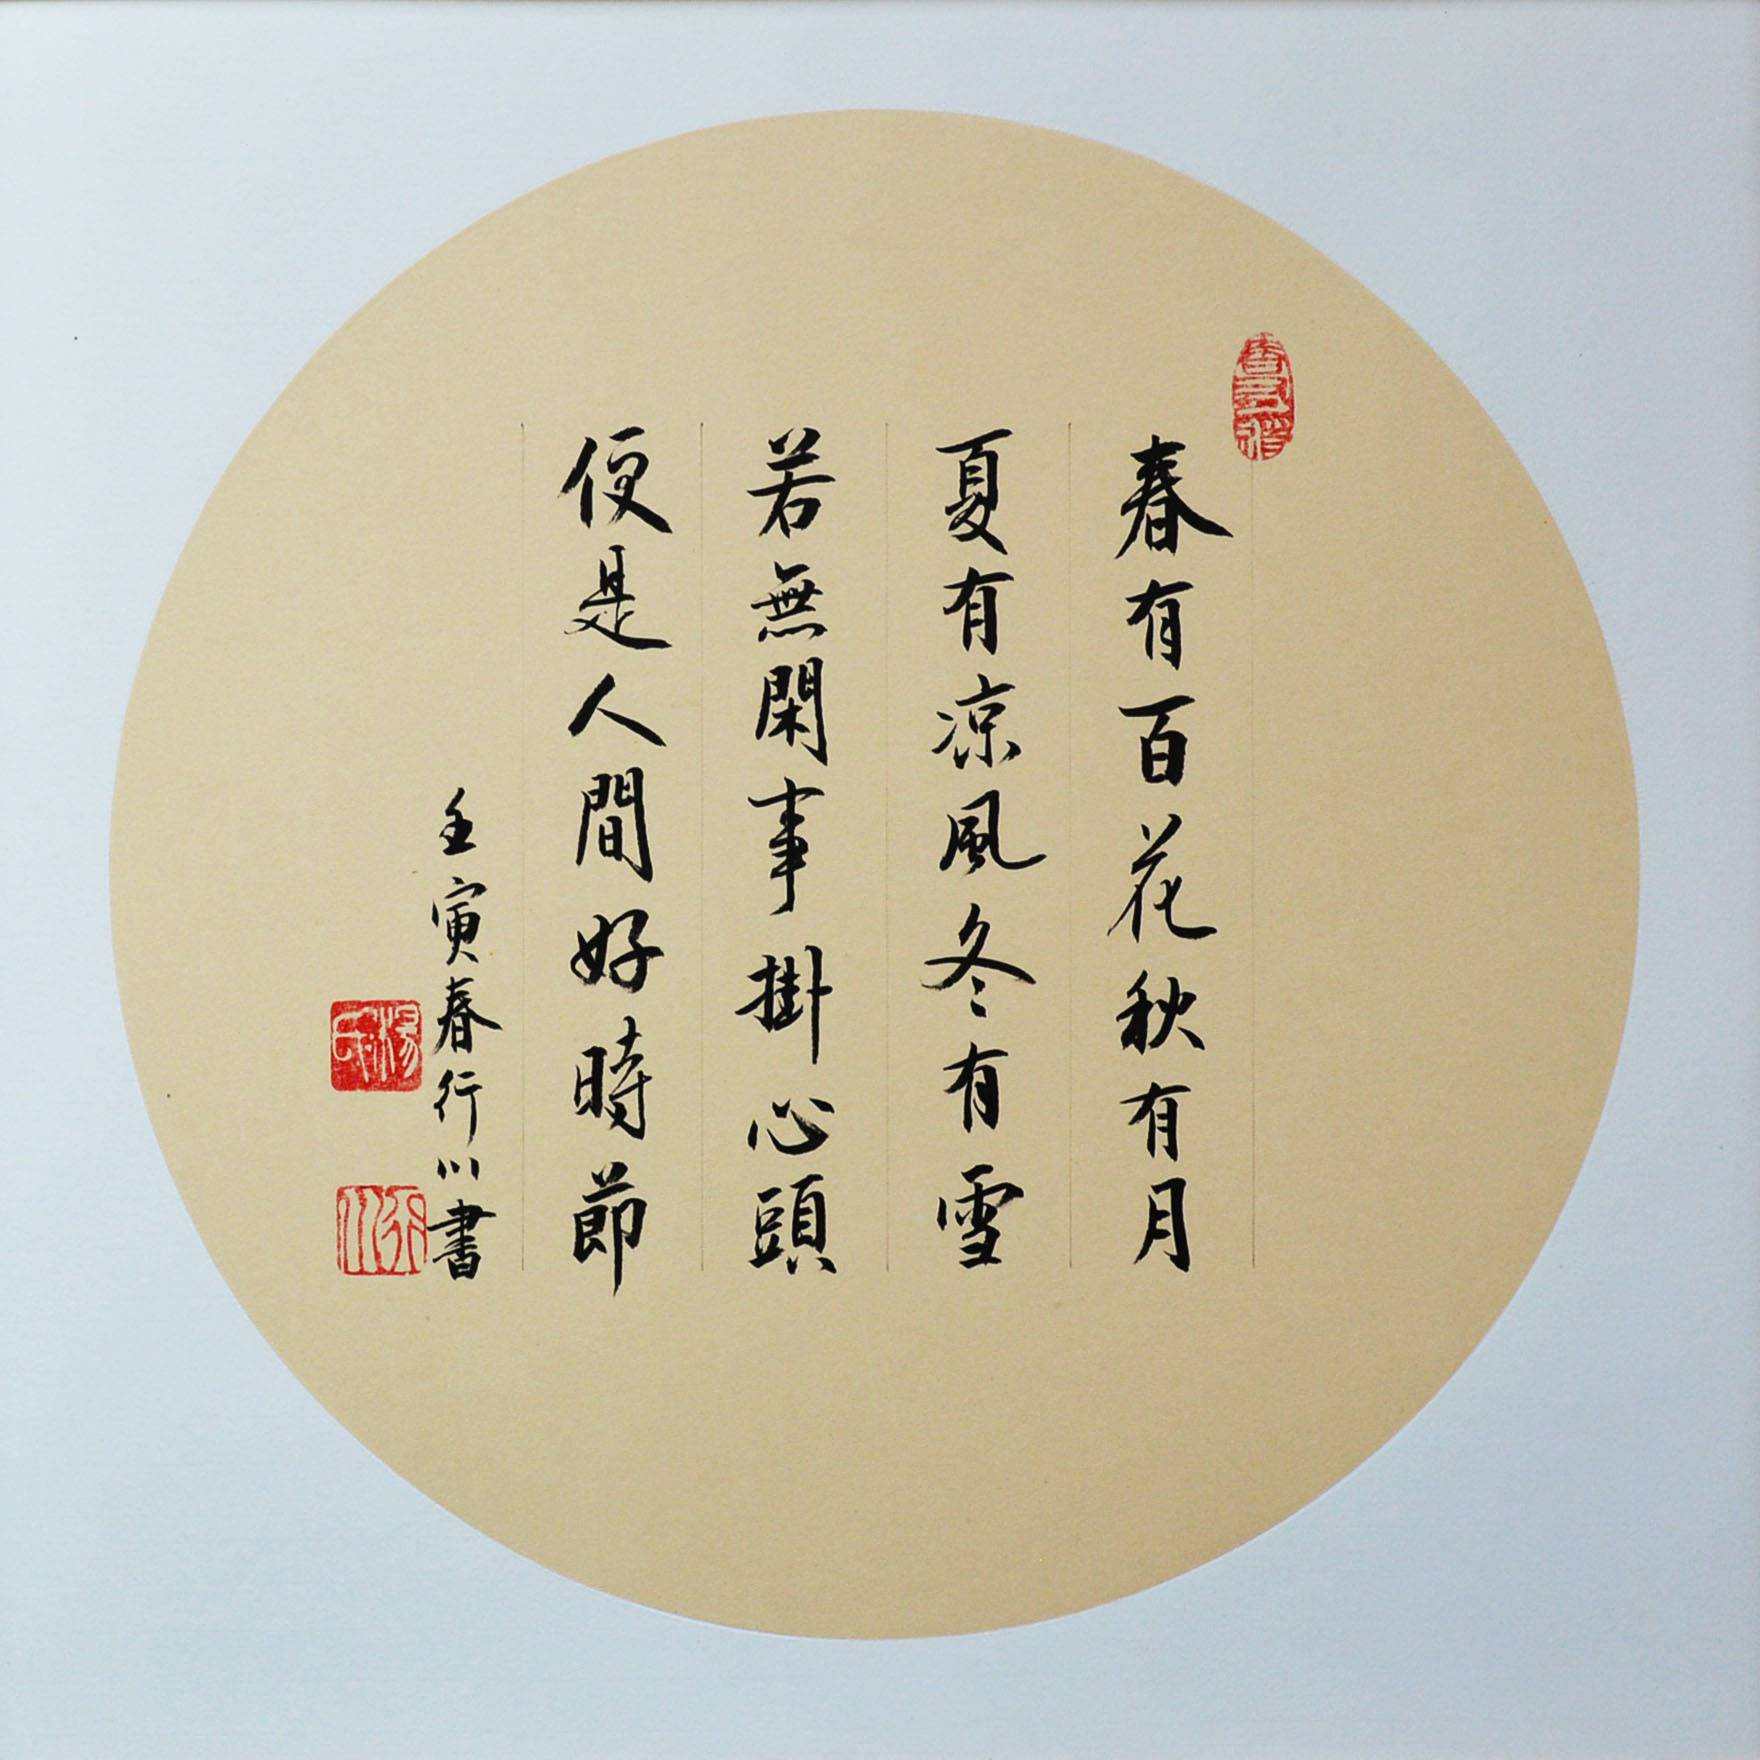 春有百花秋有月
夏有凉風冬有雪
若無閑事掛心頭
便是人間好時節
壬寅春行川書
楊氏
行川